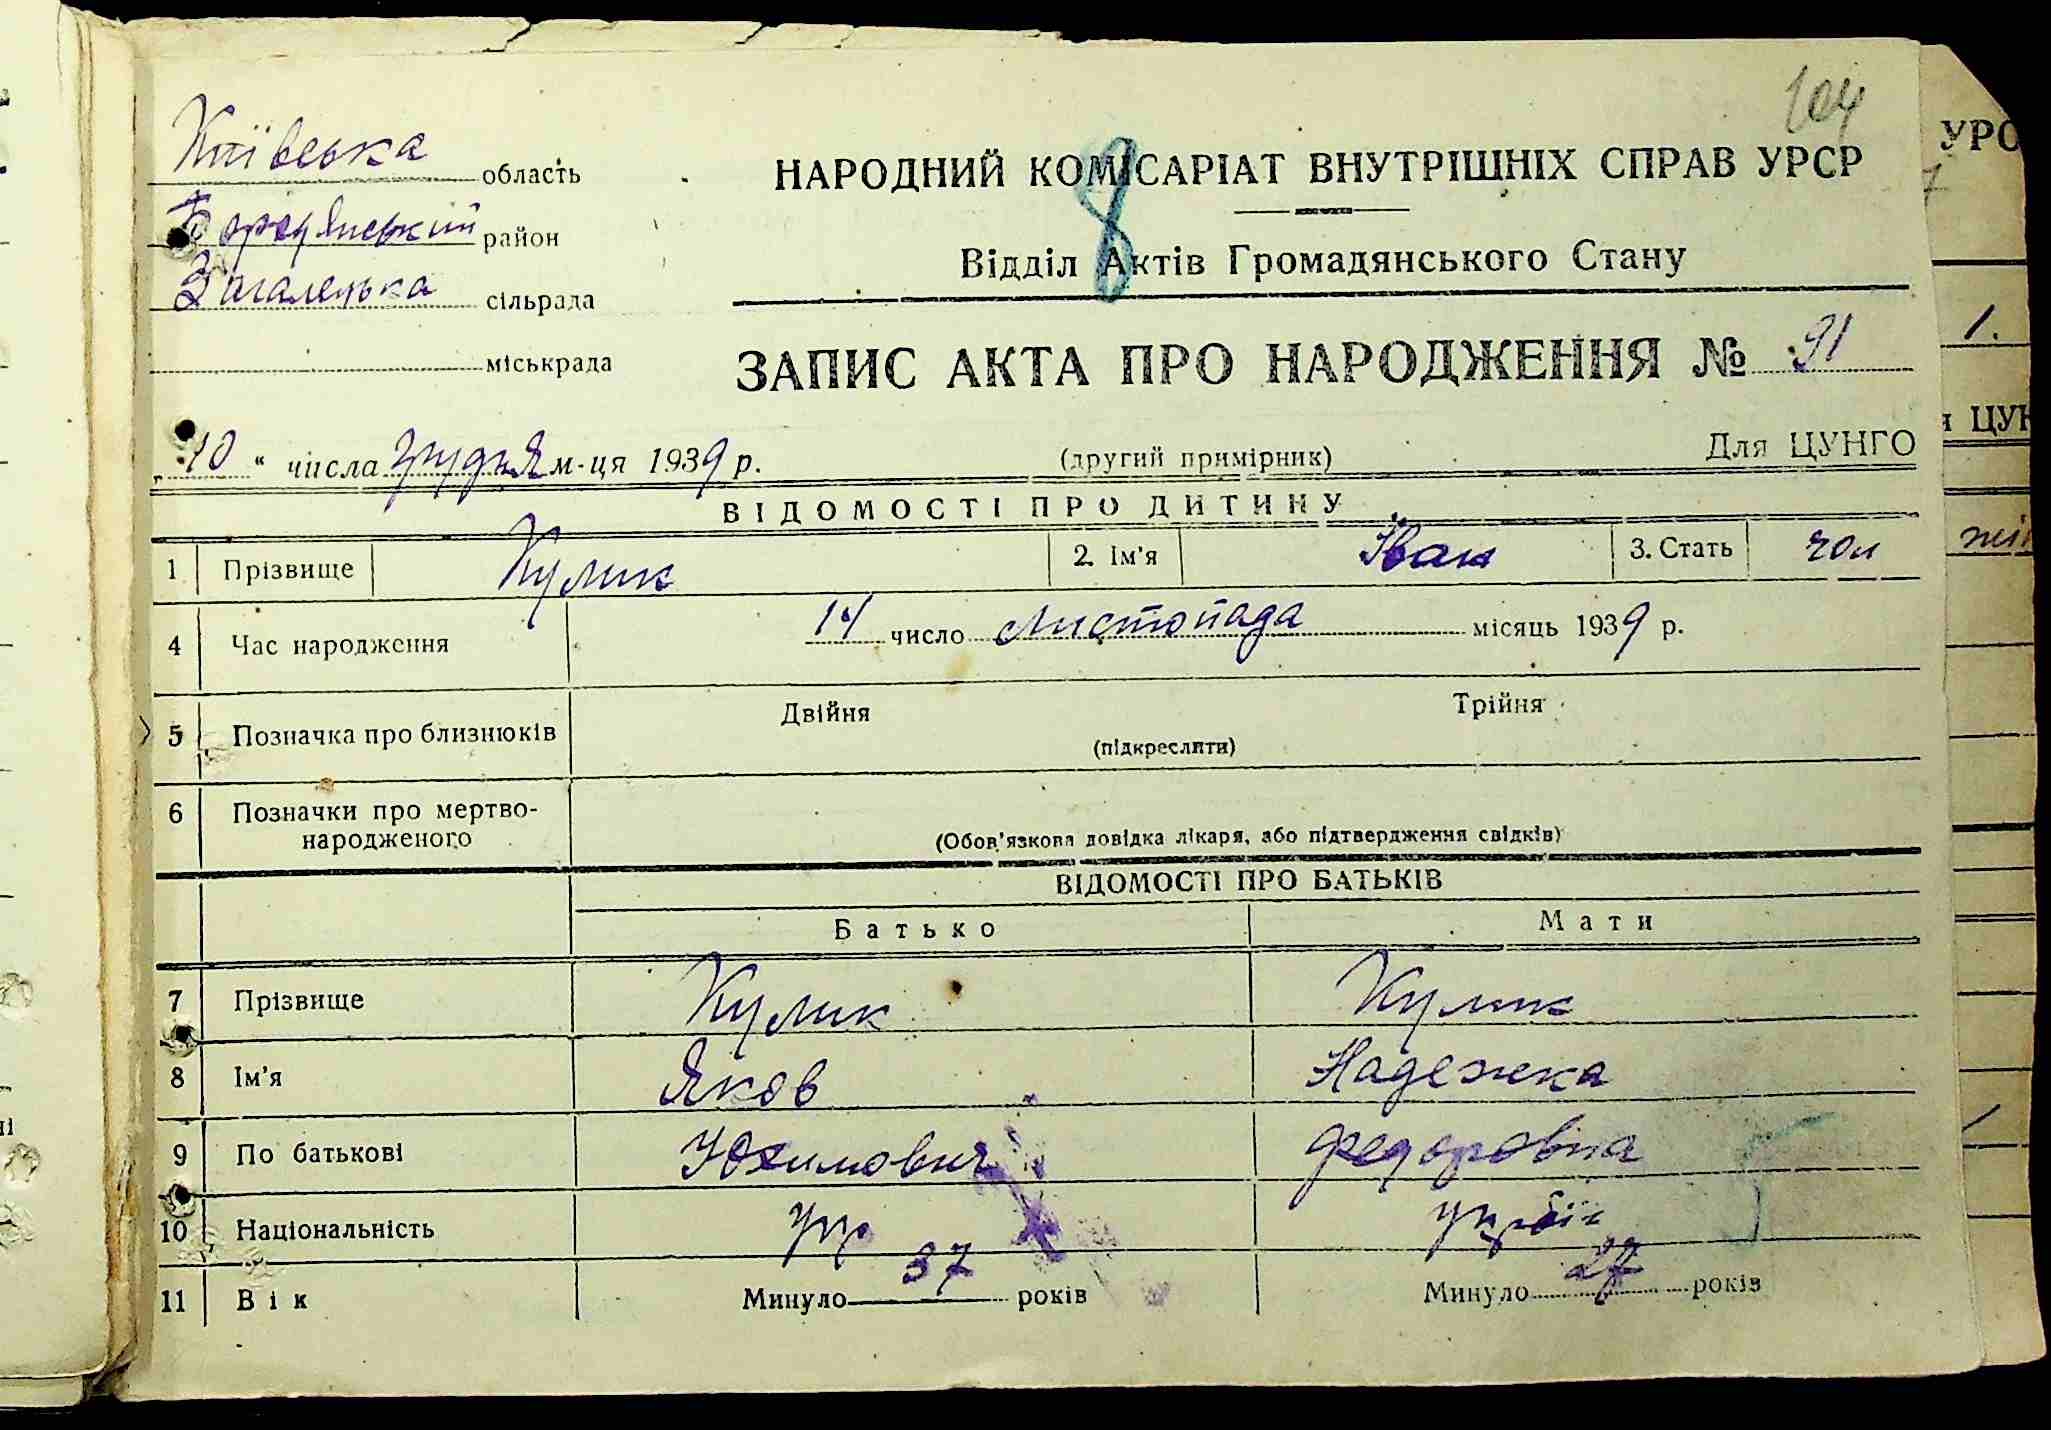 104
Київська область
Бородянський район
Загалецька сільрада
міськрада
НАРОДНИЙ КОМІСАРІАТ ВНУТРІШНІХ СПРАВ УРСР
8
Відділ Актів Громадянського Стану
ЗАПИС АКТА ПРО НАРОДЖЕННЯ № 91
„10“ числа грудня м-ця 1939 р.
(другий примірник)
Для ЦУНГО
ВІДОМОСТІ ПРО ДИТИНУ
1 Прізвище Кулик 2. Ім'я Іван 3. Стать чол
4 Час народження 14 число Листопада місяць 1939 р.
5 Позначка про близнюків Двійня Трійня
(підкреслити)
6 Позначки про мертво-
народженого
(Обов'язкова довідка лікаря, або підтвердження свідків)
ВІДОМОСТІ ПРО БАТЬКІВ
Батько Мати
7 Прізвище Кулик Кулик
8 Ім'я Яков Надежка
9 По батькові Юхимович Федоровна
10 Національність укр
11 Вік Минуло 37 років Минуло 27 років
УРС
1.
ЦУН
жін